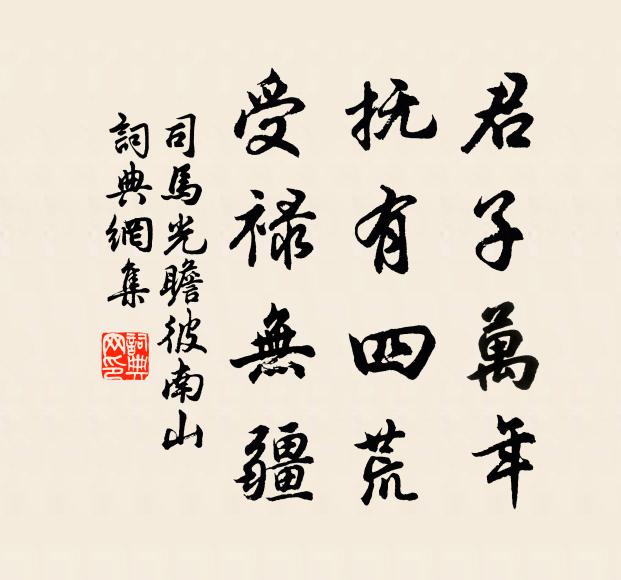 君子萬年
抚有四荒
受禄無疆
司馬光瞻彼南山
詞典網集
詞典网印